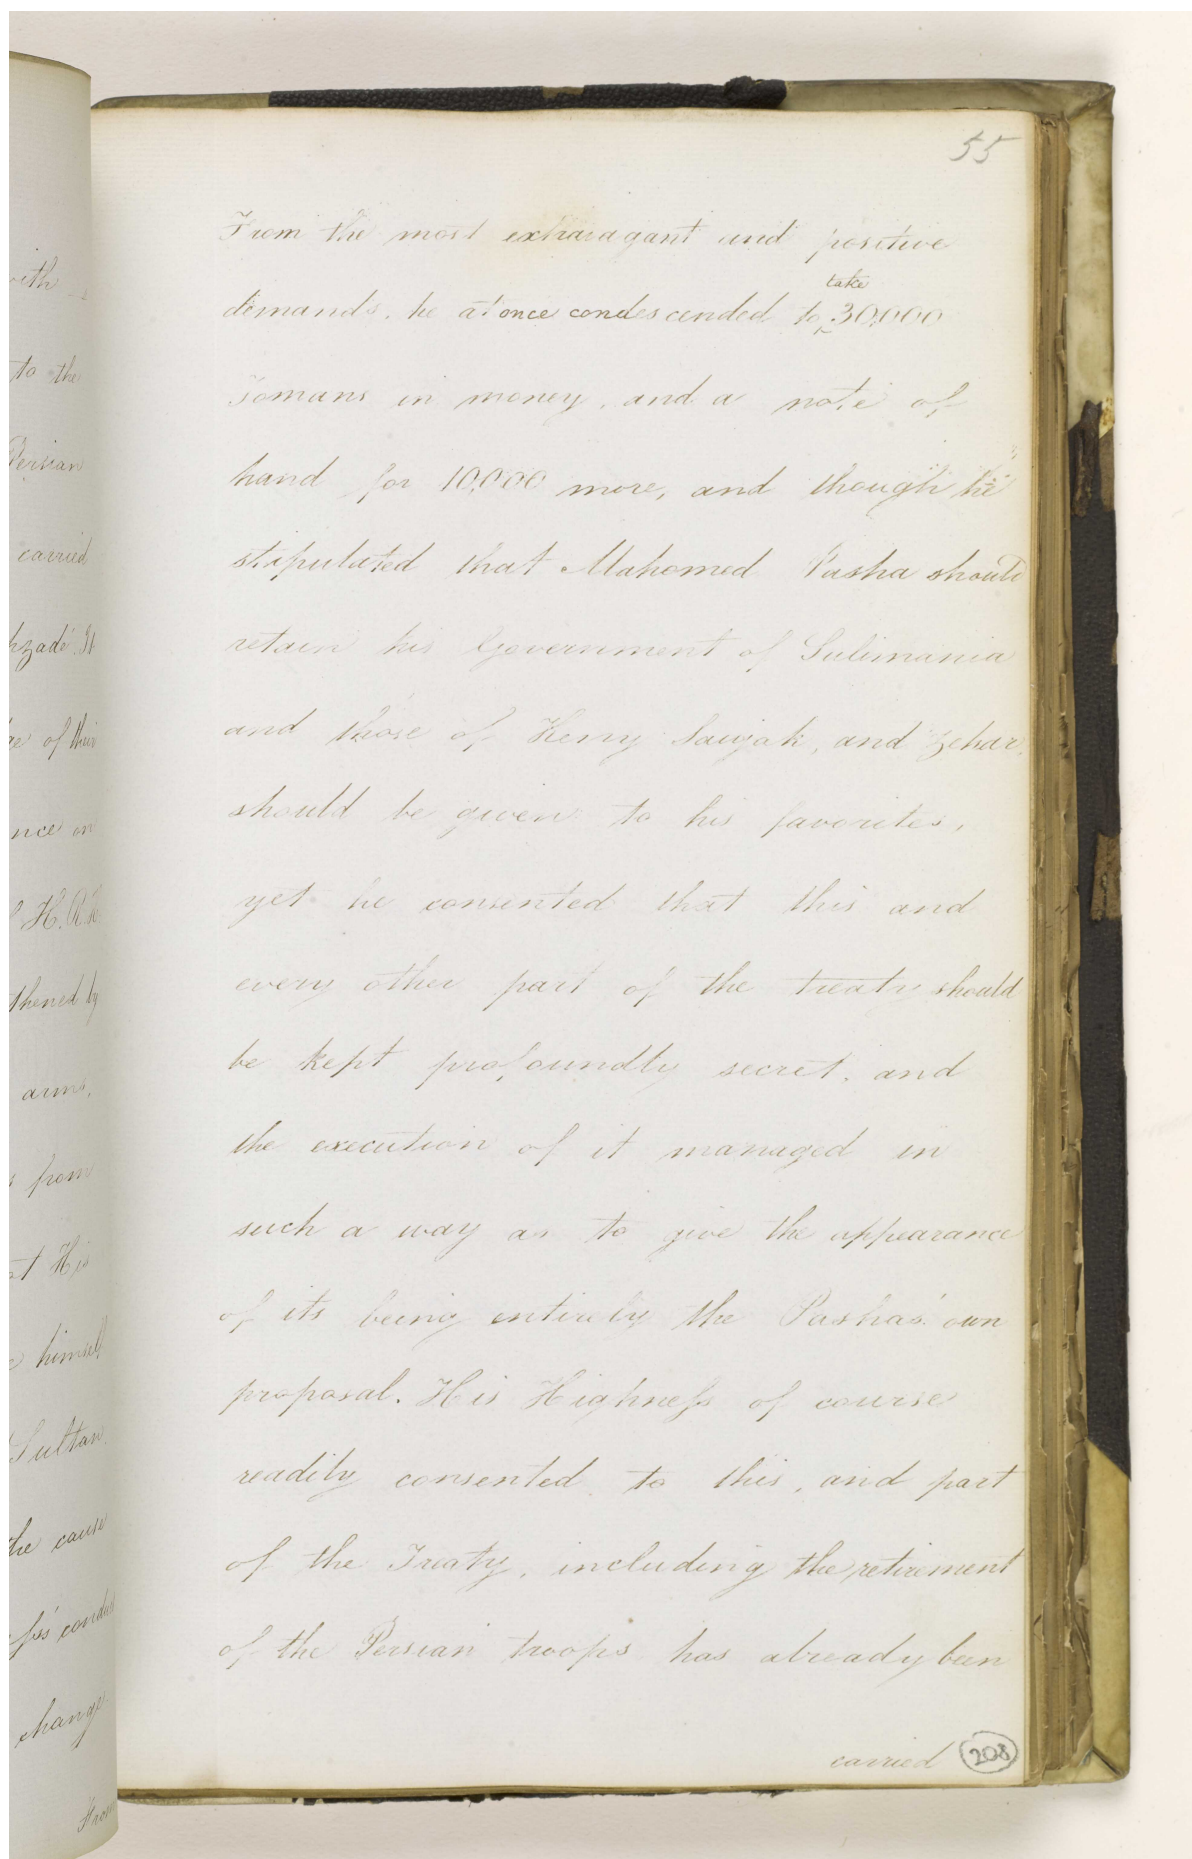 55
From the most extravagant and positive
take
demands, he at once condescended to 30,000
Tomans in money, and a note of
hand for 10,000 more, and though he
stipulated that Mahomed Pasha should
retain his Government of Sulimania
and those of Keruy Sanjak, and Zehav,
should be given to his favorites,
yet he consented that this and
every other part of the treaty should
be kept profoundly secret, and
the execution of it managed in
such a way as to give the appearance
of its being entirely the Pashas' own
proposal. His Highness of course
readily consented to this, and part
of the Treaty, including the retirement
of the Persian troops has already been
carried
208
to the
Persian
carried
hzadé. It
of their
nce on
H.R.H
thened by
arms,
from
at His
himself
Sultan
the cause
conduct
change
From